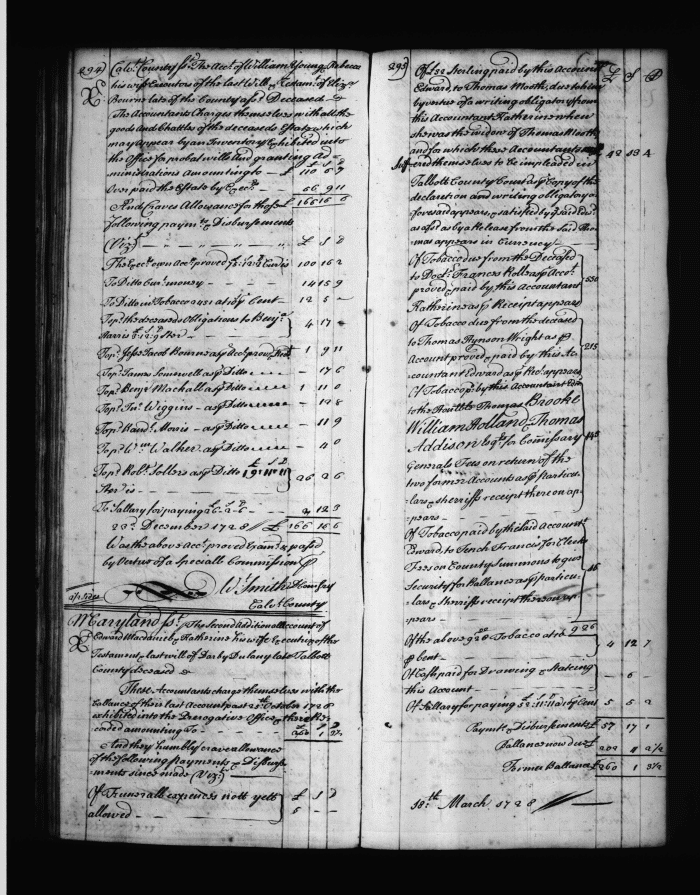 294
Calv.t County ss. The Acct. of William Young, Rebecca
his wife Executors of the last Will & Testam.t of Eliz.a
Bourn late of the County afs.d Deceased
The Accountants Charges themselves with all the
goods and Chattles of the deceaseds Estate which
may appear by an Inventory Exhibited into
the Office for probat wills and granting Ad-
£ S D
ministrations Amounting to — £ 110 6 9
Over paid the Estate by Exec.rs 66 9 11
And Craves Allowance for these £ 166 16 6
following paym.ts & Disbursments
(Viz.) £ S D
The Exec.rs own Acct. proved Curr.is 100 16 2
To Ditto Curr.t money 14 15 9
To Ditto in Tobacco 2451 at 10/ p Cent 12 5 —
To p.d the deceaseds Obligations to Benj.a
Harris Ster. 4 17
To p.d Jacob Bourne as p Acct. prov.d 1 9 11
To p.d James Somervell as p Ditto — 17 6
To p.d Benj.a Mackall as p Ditto 1 11 0
To p.d Jn.o Wiggins as p Ditto — 19 8
To p.d Morris as p Ditto — 11 9
To p.d W.m Walker as p Ditto — 4 0
To p.d Rob.t Sollers as p Ditto £ S D 19 11 11
Ster. is 26 2 6
To Sallary for paying 12 3
23.d December 1728 // £ 166 16 6
Was the above Acct. proved Exam.d & passed
by Virtue of a Speciall Commission p
W. Smith Com.sary
2 p.r sides Calv.t County
Maryland ss. The Second Additionall Account of
Edward Macdaniel & Katherine his wife Executrix of the
Testament & last will of Darby Dulany late Talbott
County deceased
These Accountants charge themselves with the
Ballance of their last Account past 25.th October 1728
exhibited into the Prerogative Office &
£ S D
ceaded amounting To 260 1 3½
And they humbly crave allowance
of the following payments & Disburs-
ments since made (Viz.)
Of Funerall expences nott yett £ S D
allowed 5 — —
295
Of £32 Sterling paid by this Account £ S D
Edward to Thomas
by vertue of a writing obligatory from
this Accountant Katherine when
she was the widow of Thomas
and for which these Accountants
suffered themselves to be impleaded in 42 13 4
Talbott County Court as p Copy of the
declaration and writing obligatory a
foresaid appears, & satisfied by y.e said
as afs.d as by a Release from the said Tho-
mas appears in Currency
Of Tobacco due from the Deceased
to Doct.r Francis as p Acct.
proved & paid by this Accountant 550
Katherine as p Receipt appears
Of Tobacco due from the deceased
to Thomas Hynson Wright as p 215
Account proved & paid by this Ac-
countant Edward as p Rec.t appears
Of Tobacco p.d by this Accountant
to the Hon.ble Thomas Brooke
William Holland, Thomas
Addison Esq.rs for Comissary
Generals Fees on return of the
two former Accounts as p particu-
lars & sherriffs receipt thereon ap-
pears
Of Tobacco paid by the said Account.t
Edward to Tench Francis for Clerks
Fees on County Summons to give
Security for Ballance as p particu-
lars & sherriffs receipt thereon ap-
pears 926
Of the above 926 Tobacco at 10/
p Cent 4 12 7
Of Cash paid for Drawing & Stateing
this Account — 6 —
Of Sallary for paying 52:11:11 at 10 p Cent 5 5 2
Paym.ts & Disbursments £ 57 17 1
Ballance now due £ 202 4 2½
Former Ballance £ 260 1 3½
18.th March 1728